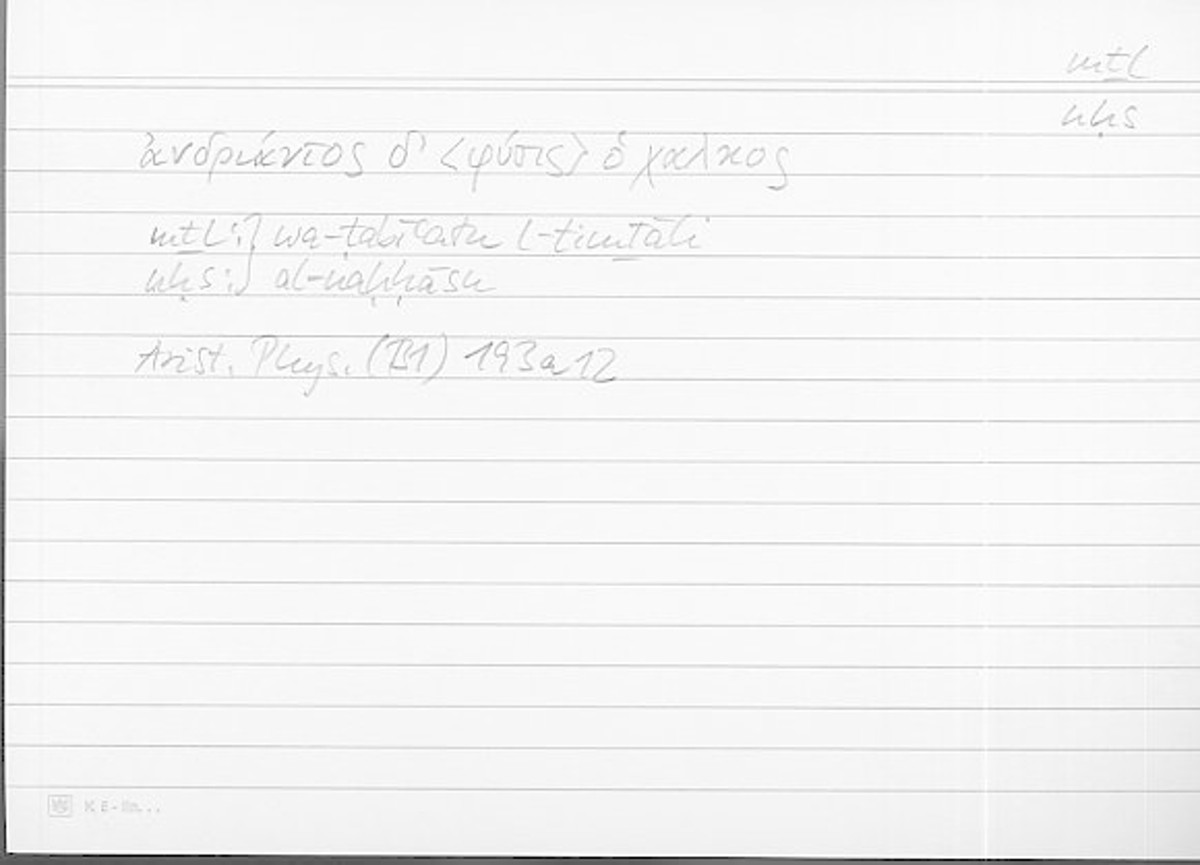 mṯl
nḥs
ἀνδριάντος δ' <φύσις> ὁ χαλκος
mṯl:} wa-ṭabīʿatu l-timṯāli
nḥs:} al-naḥḥāsu
Arist. Phys. (B1) 193a12